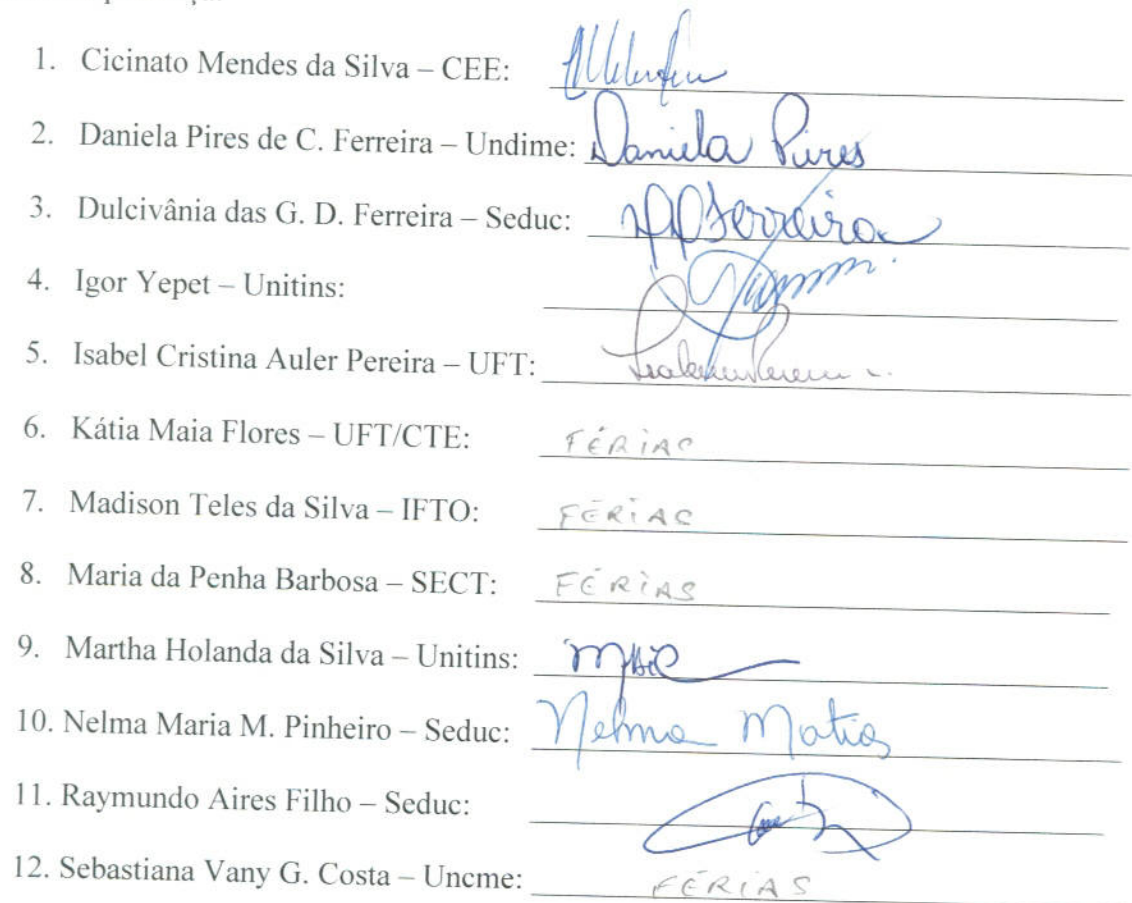 1. Cicinato Mendes da Silva – CEE:
2. Daniela Pires de C. Ferreira – Undime: Daniela Pires
3. Dulcivânia das G. D. Ferreira – Seduc: Ferreira
4. Igor Yepet – Unitins:
5. Isabel Cristina Auler Pereira – UFT:
6. Kátia Maia Flores – UFT/CTE: FÉRIAS
7. Madison Teles da Silva – IFTO: FÉRIAS
8. Maria da Penha Barbosa – SECT: FÉRIAS
9. Martha Holanda da Silva – Unitins:
10. Nelma Maria M. Pinheiro – Seduc: Nelma Matias
11. Raymundo Aires Filho – Seduc:
12. Sebastiana Vany G. Costa – Uncme: FÉRIAS